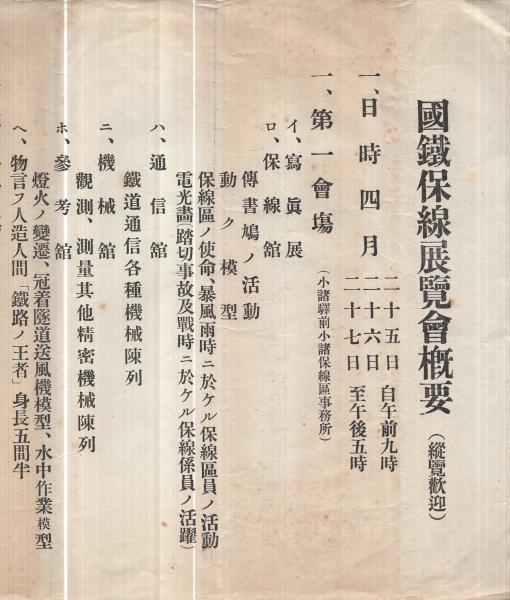 國鐵保線展覽會概要（縱覽歡迎）
一、日時四月
二十五日
二十六日
二十七日
自午前九時
至午後五時
一、第一會場（小諸驛前小諸保線區事務所）
イ、寫眞展
ロ、保線館
傳書鳩ノ活動
動ク模型
保線區ノ使命、暴風雨時ニ於ケル保線區員ノ活動
電光畵（踏切事故及戰時ニ於ケル保線係員ノ活躍）
ハ、通信館
鐵道通信各種機械陳列
ニ、機械館
觀測、測量其他精密機械陳列
ホ、參考館
燈火ノ變遷、冠着隧道送風機模型、水中作業模型
ヘ、物言フ人造人間「鐵路ノ王者」身長五間半